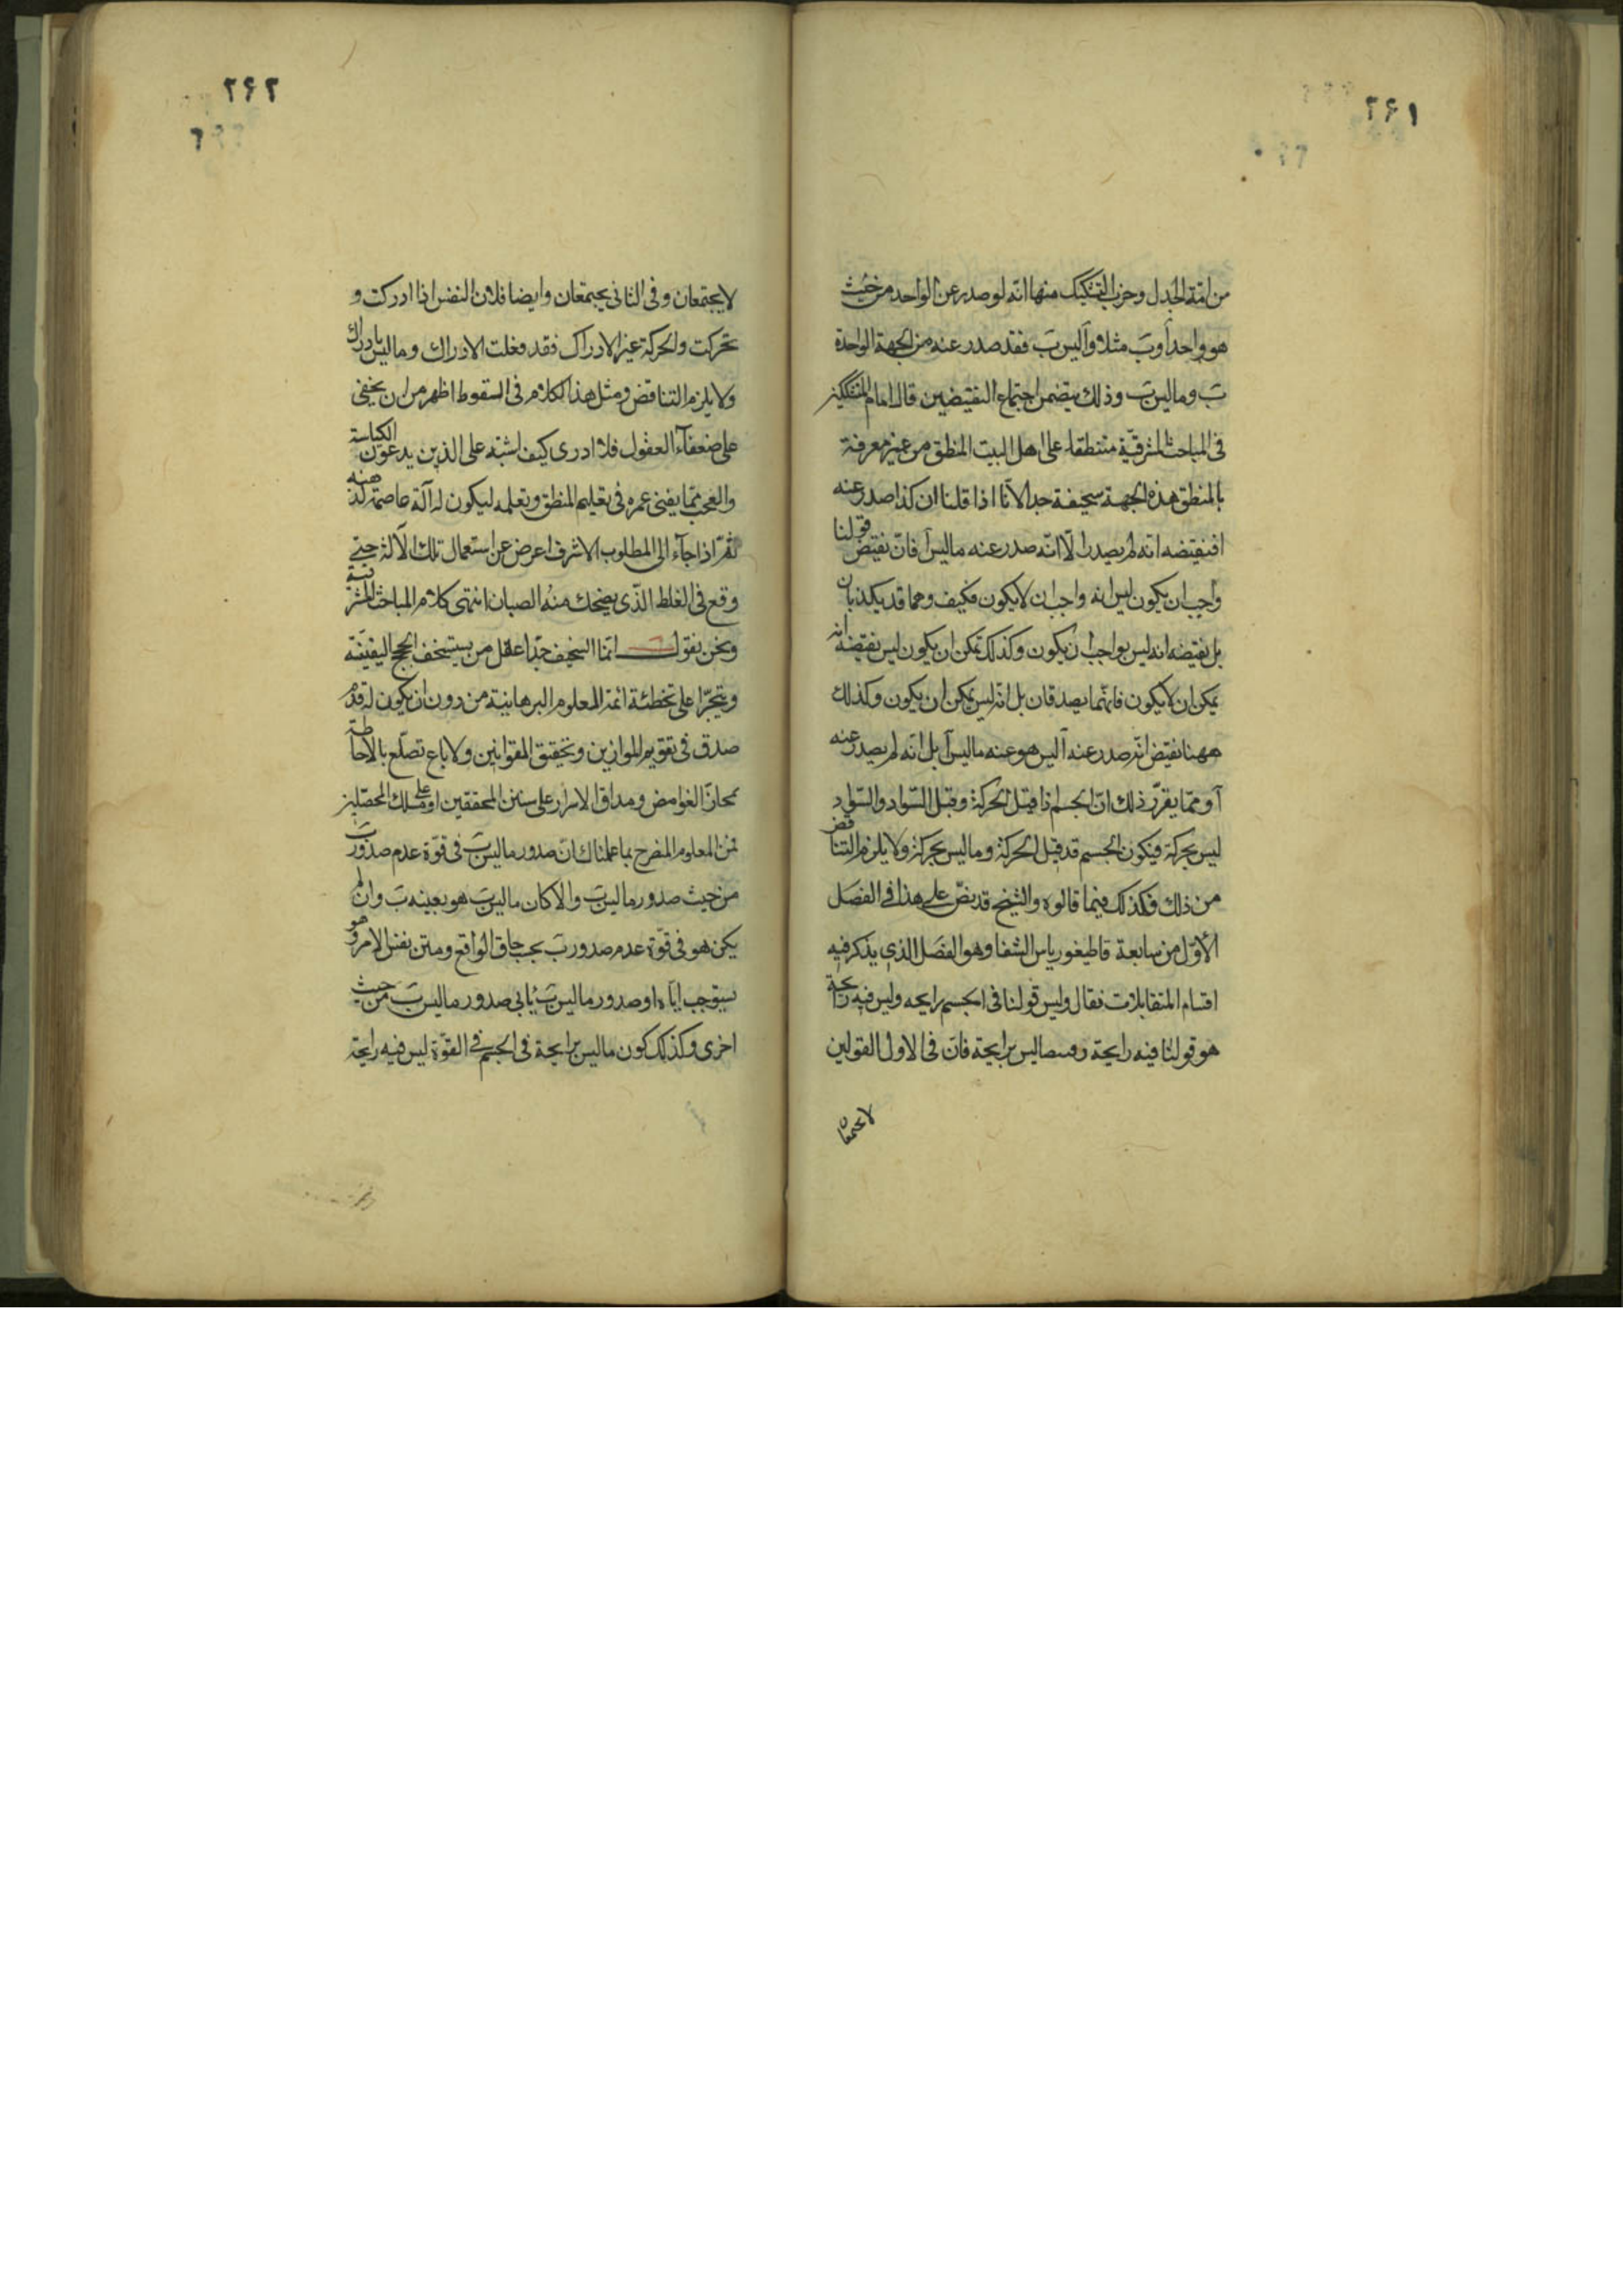 ۲۶۱
من امّة الجدل وحزب التشكيك منها انّه لو صدر عن الواحد من حيث
هو واحد آ وبَ مثلا وآ ليس بَ فقد صدر عنه من الجهة الواحدة
بَ وما ليس بَ وذلك يتضمن اجتماع النقيضين قال امام المتشككين
فى المباحث المشرقيّة متنطقا على اهل البيت المنطق من غير معرفة
بالمنطق هذه الجهة سخيفة جدا لانّا اذا قلنا ان كذا صدر عنه
افنقيضه انه لم يصدر الّا انّه صدر عنه ما ليس آ فانّ نقيض قولنا
واجب ان يكون ليس انه واجب ان لا يكون فكيف وهما قد يكذبان
بل نقيضه انه ليس بواجب ان يكون وكذلك ممكن ان يكون ليس نقيضه انه
يمكن ان لا يكون فانّهما يصدقان بل انّه ليس يمكن ان يكون وكذلك
ههنا نقيض انّه صدر عنه آ ليس هو عنه ما ليس آ بل انّه لم يصدر عنه
آ وممّا يقرّر ذلك انّ الجسم اذا قبل الحركة وقبل السّواد والسّواد
ليس بحركة فيكون الجسم قد قبل الحركة وما ليس بحركة ولا يلزم التناقض
من ذلك فكذلك فيما قالوه والشيخ قد نصّ على هذا فى الفصل
الأوّل من سابعة قاطيغورياس الشفا وهو الفصل الذى يذكر فيه
اقسام المتقابلات فقال وليس قولنا فى الجسم رايحه وليس فيه رايحة
هو قولنا فيه رايحة وما ليس برايحة فان فى الاول القولين
لا يجتمعان
۲۶۲
لا يجتمعان وفى الثانى يجتمعان وايضا فلان النفس اذا ادركت و
تحركت والحركة غير الادراك فقد فعلت الادراك وما ليس بادراك
ولا يلزم التناقض ومثل هذا الكلام فى السقوط اظهر من ان يخفى
على ضعفآء العقول فلا ادرى كيف اشتبه على الذين يدعون الكياسة
والعجب ممّا يفنى عمره فى تعليم المنطق وتعلمه ليكون له آلة عاصمة لذهنه
ثمّ اذا جآء الى المطلوب الاشرف اعرض عن استعمال تلك الآلة حتى
وقع فى الغلط الذّى يضحك منه الصبيان انتهى كلام المباحث المشرقية
ونحن نقول انّما السخيف جدّا عقل من يستسخف الحجج اليقينيّة
ويتجرّا على تخطئة ائمة العلوم البرهانيّة من دون ان يكون له قدم
صدق فى تقويم الموازين وتحقيق القوانين ولا باع تضلّع بالاحاطة
بمحازّ الغوامض ومداق الاسرار على سنن المحققين او على مسلك المحصّلين
فمن المعلوم المنصرح بما علمناك انّ صدور ما ليس بَ فى قوّة عدم صدور بَ
من حيث صدور ما ليس بَ والا كان ما ليس بَ هو بعينه بَ وان لم
يكن هو فى قوّة عدم صدور بَ بحسب حاق الواقع ومتن نفس الامر وهو
يستوجب ايّاه او صدور ما ليس بَ يأبى صدور ما ليس بَ من حيث
اخرى وكذلك كون ما ليس برايحة فى الجسم فى القوّة ليس فيه رايحة